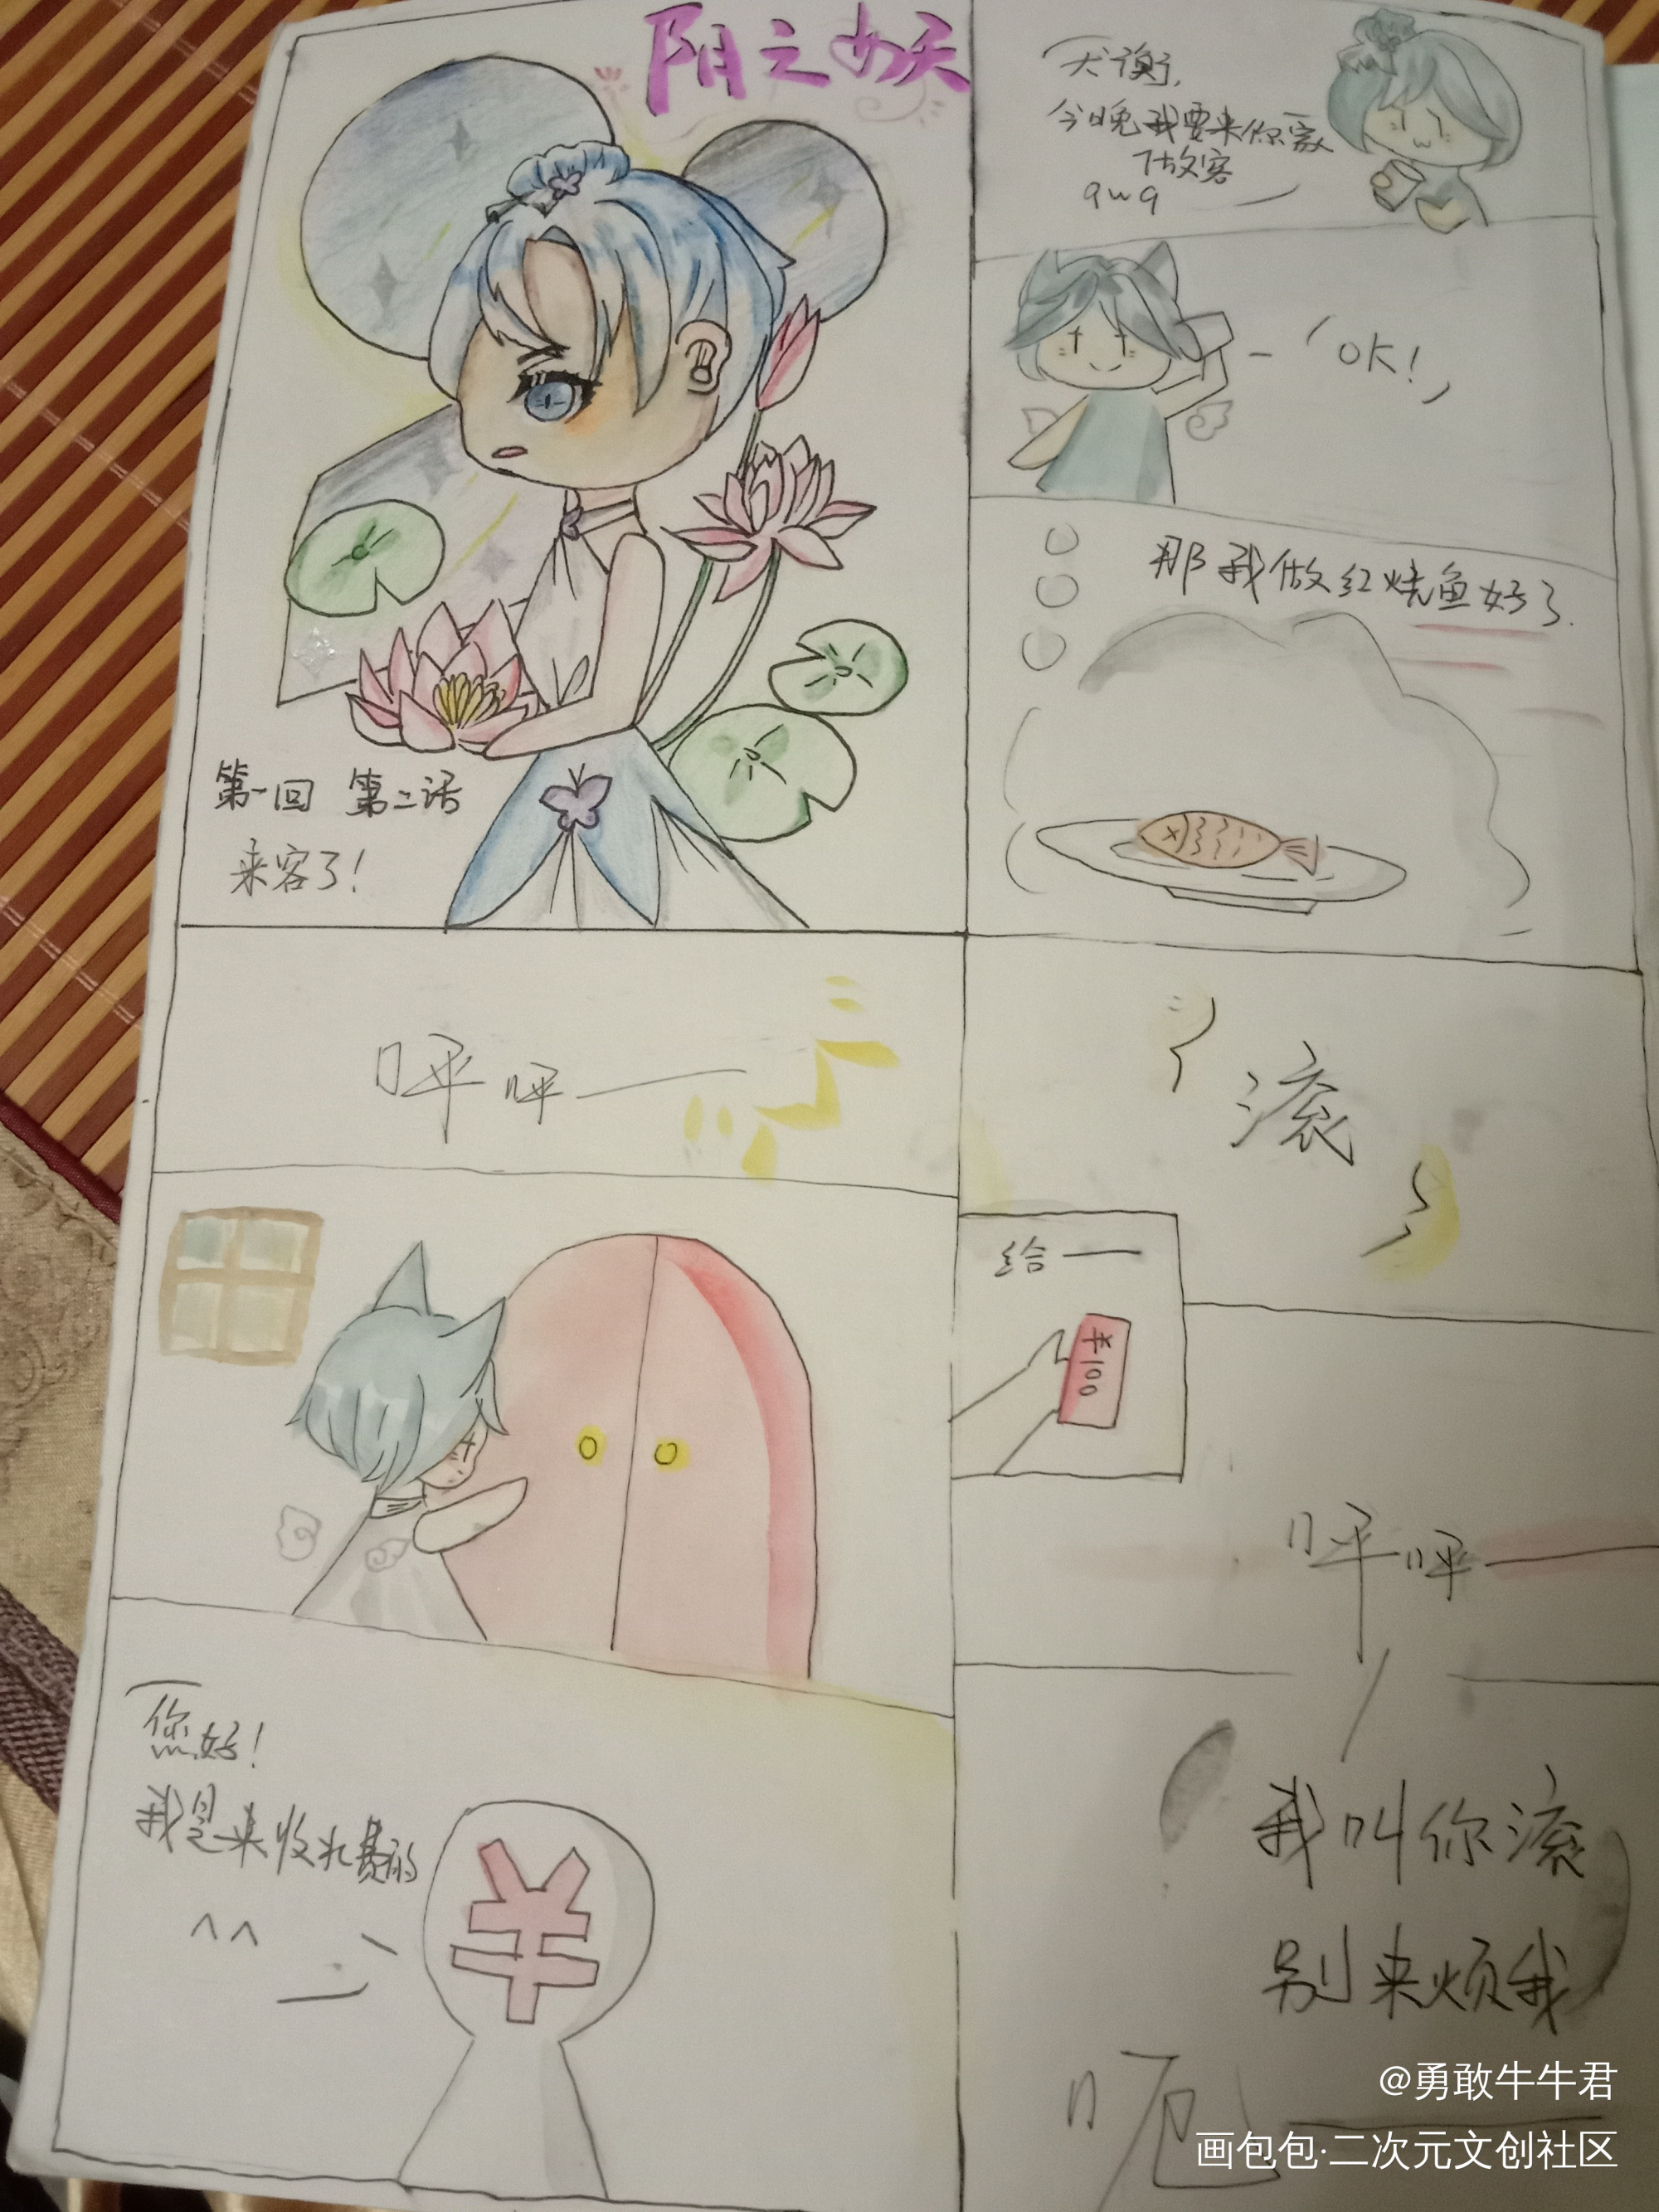 阴之女夭
第一回 第二话
来客了!
犬衡,
今晚我要来你家
做客
qwq
OK!
那我做红烧鱼好了.
呯呯——
您好!
我是来收水费的
^^
¥
滚
给——
¥100
呯呯——
我叫你滚
别来烦我
呃
@勇敢牛牛君
画包包·二次元文创社区